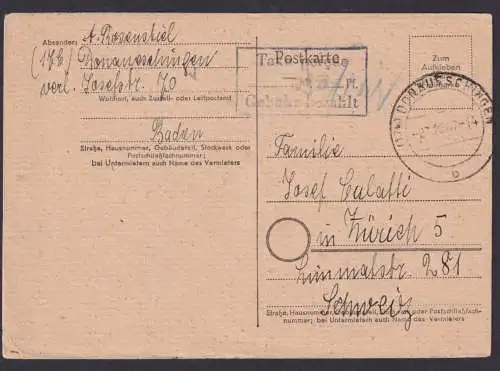 Absender: A. Rosenstiel
(17b) Donaueschingen
verl. Josefstr. 70
Wohnort, auch Zustell- oder Leitpostamt
Baden
Straße, Hausnummer, Gebäudeteil, Stockwerk oder
Postschließfachnummer;
bei Untermietern auch Name des Vermieters
Postkarte
Pf.
Gebühr bezahlt
Zum
Aufkleben
DONAUESCHINGEN
b
Familie
Josef
in Zürich 5
Limmatstr. 281
Schweiz
Straße, Hausnummer, Gebäudeteil, Stockwerk oder Postschließfach-
nummer; bei Untermietern auch Name des Vermieters